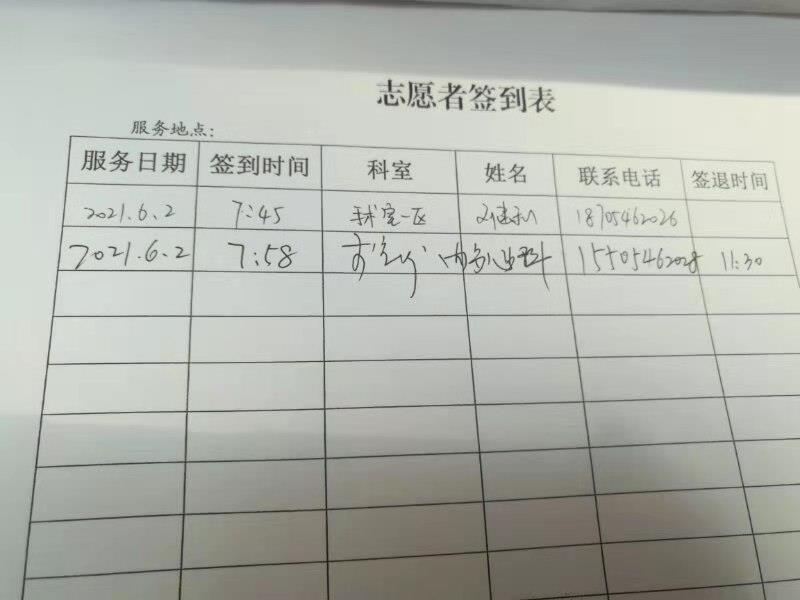 志愿者签到表
服务地点：
服务日期 签到时间 科室 姓名 联系电话 签退时间
2021.6.2 7:45 一区 18705462026
2021.6.2 7:58 15505462028 11:30